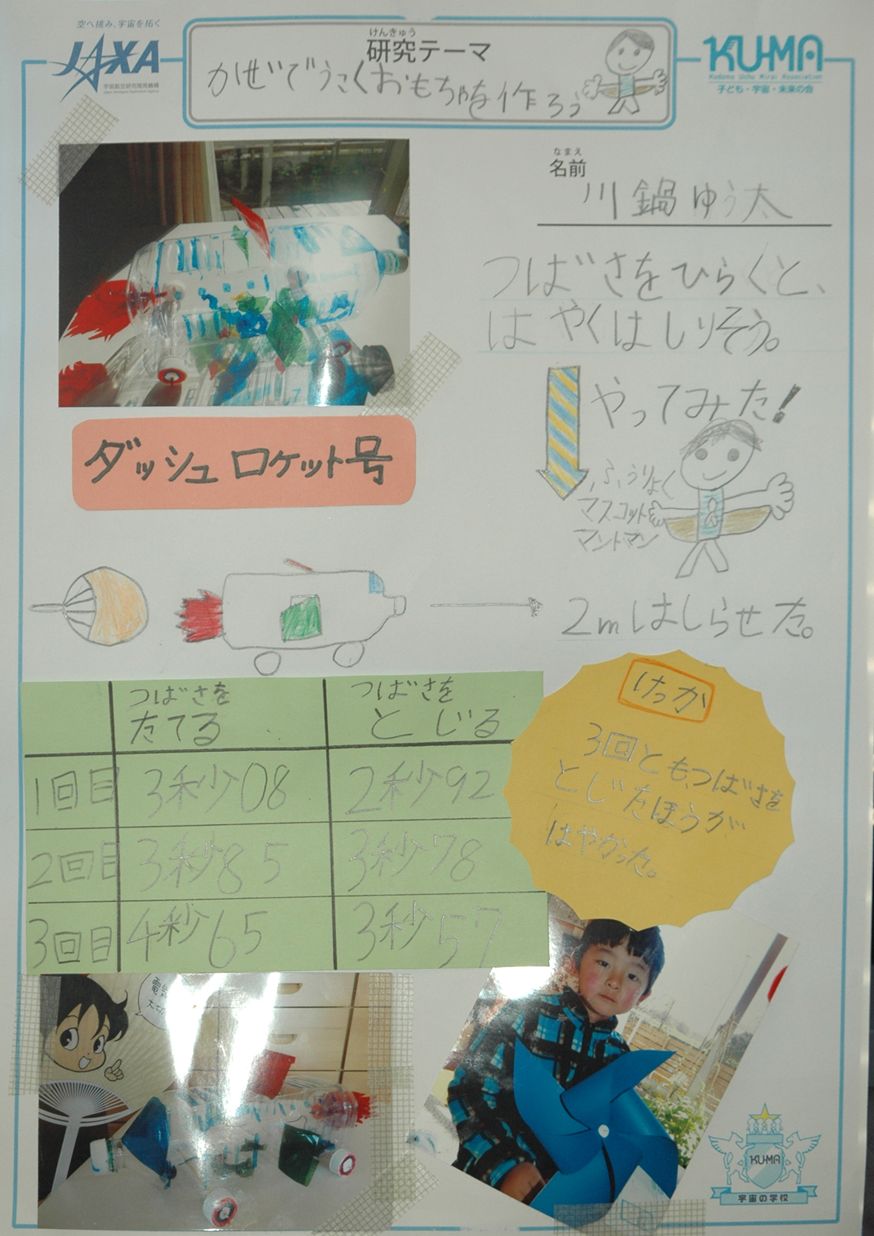 空へ挑み、宇宙を拓く
JAXA
宇宙航空研究開発機構
Japan Aerospace Exploration Agency
けんきゅう
研究テーマ
かぜでうごくおもちゃを作ろう
KU-MA
Kodomo Uchu Mirai Association
子ども・宇宙・未来の会
なまえ
名前
川鍋ゆう太
つばさをひらくと、
はやくはしりそう。
やってみた!
ふうりょく
マスコット
マントマン
ダッシュロケット号
2mはしらせた。
つばさを
たてる
つばさを
とじる
1回目 3秒08 2秒92
2回目 3秒85 3秒78
3回目 4秒65 3秒57
けっか
3回とも、つばさを
とじたほうが、
はやかった。
KU-MA
宇宙の学校